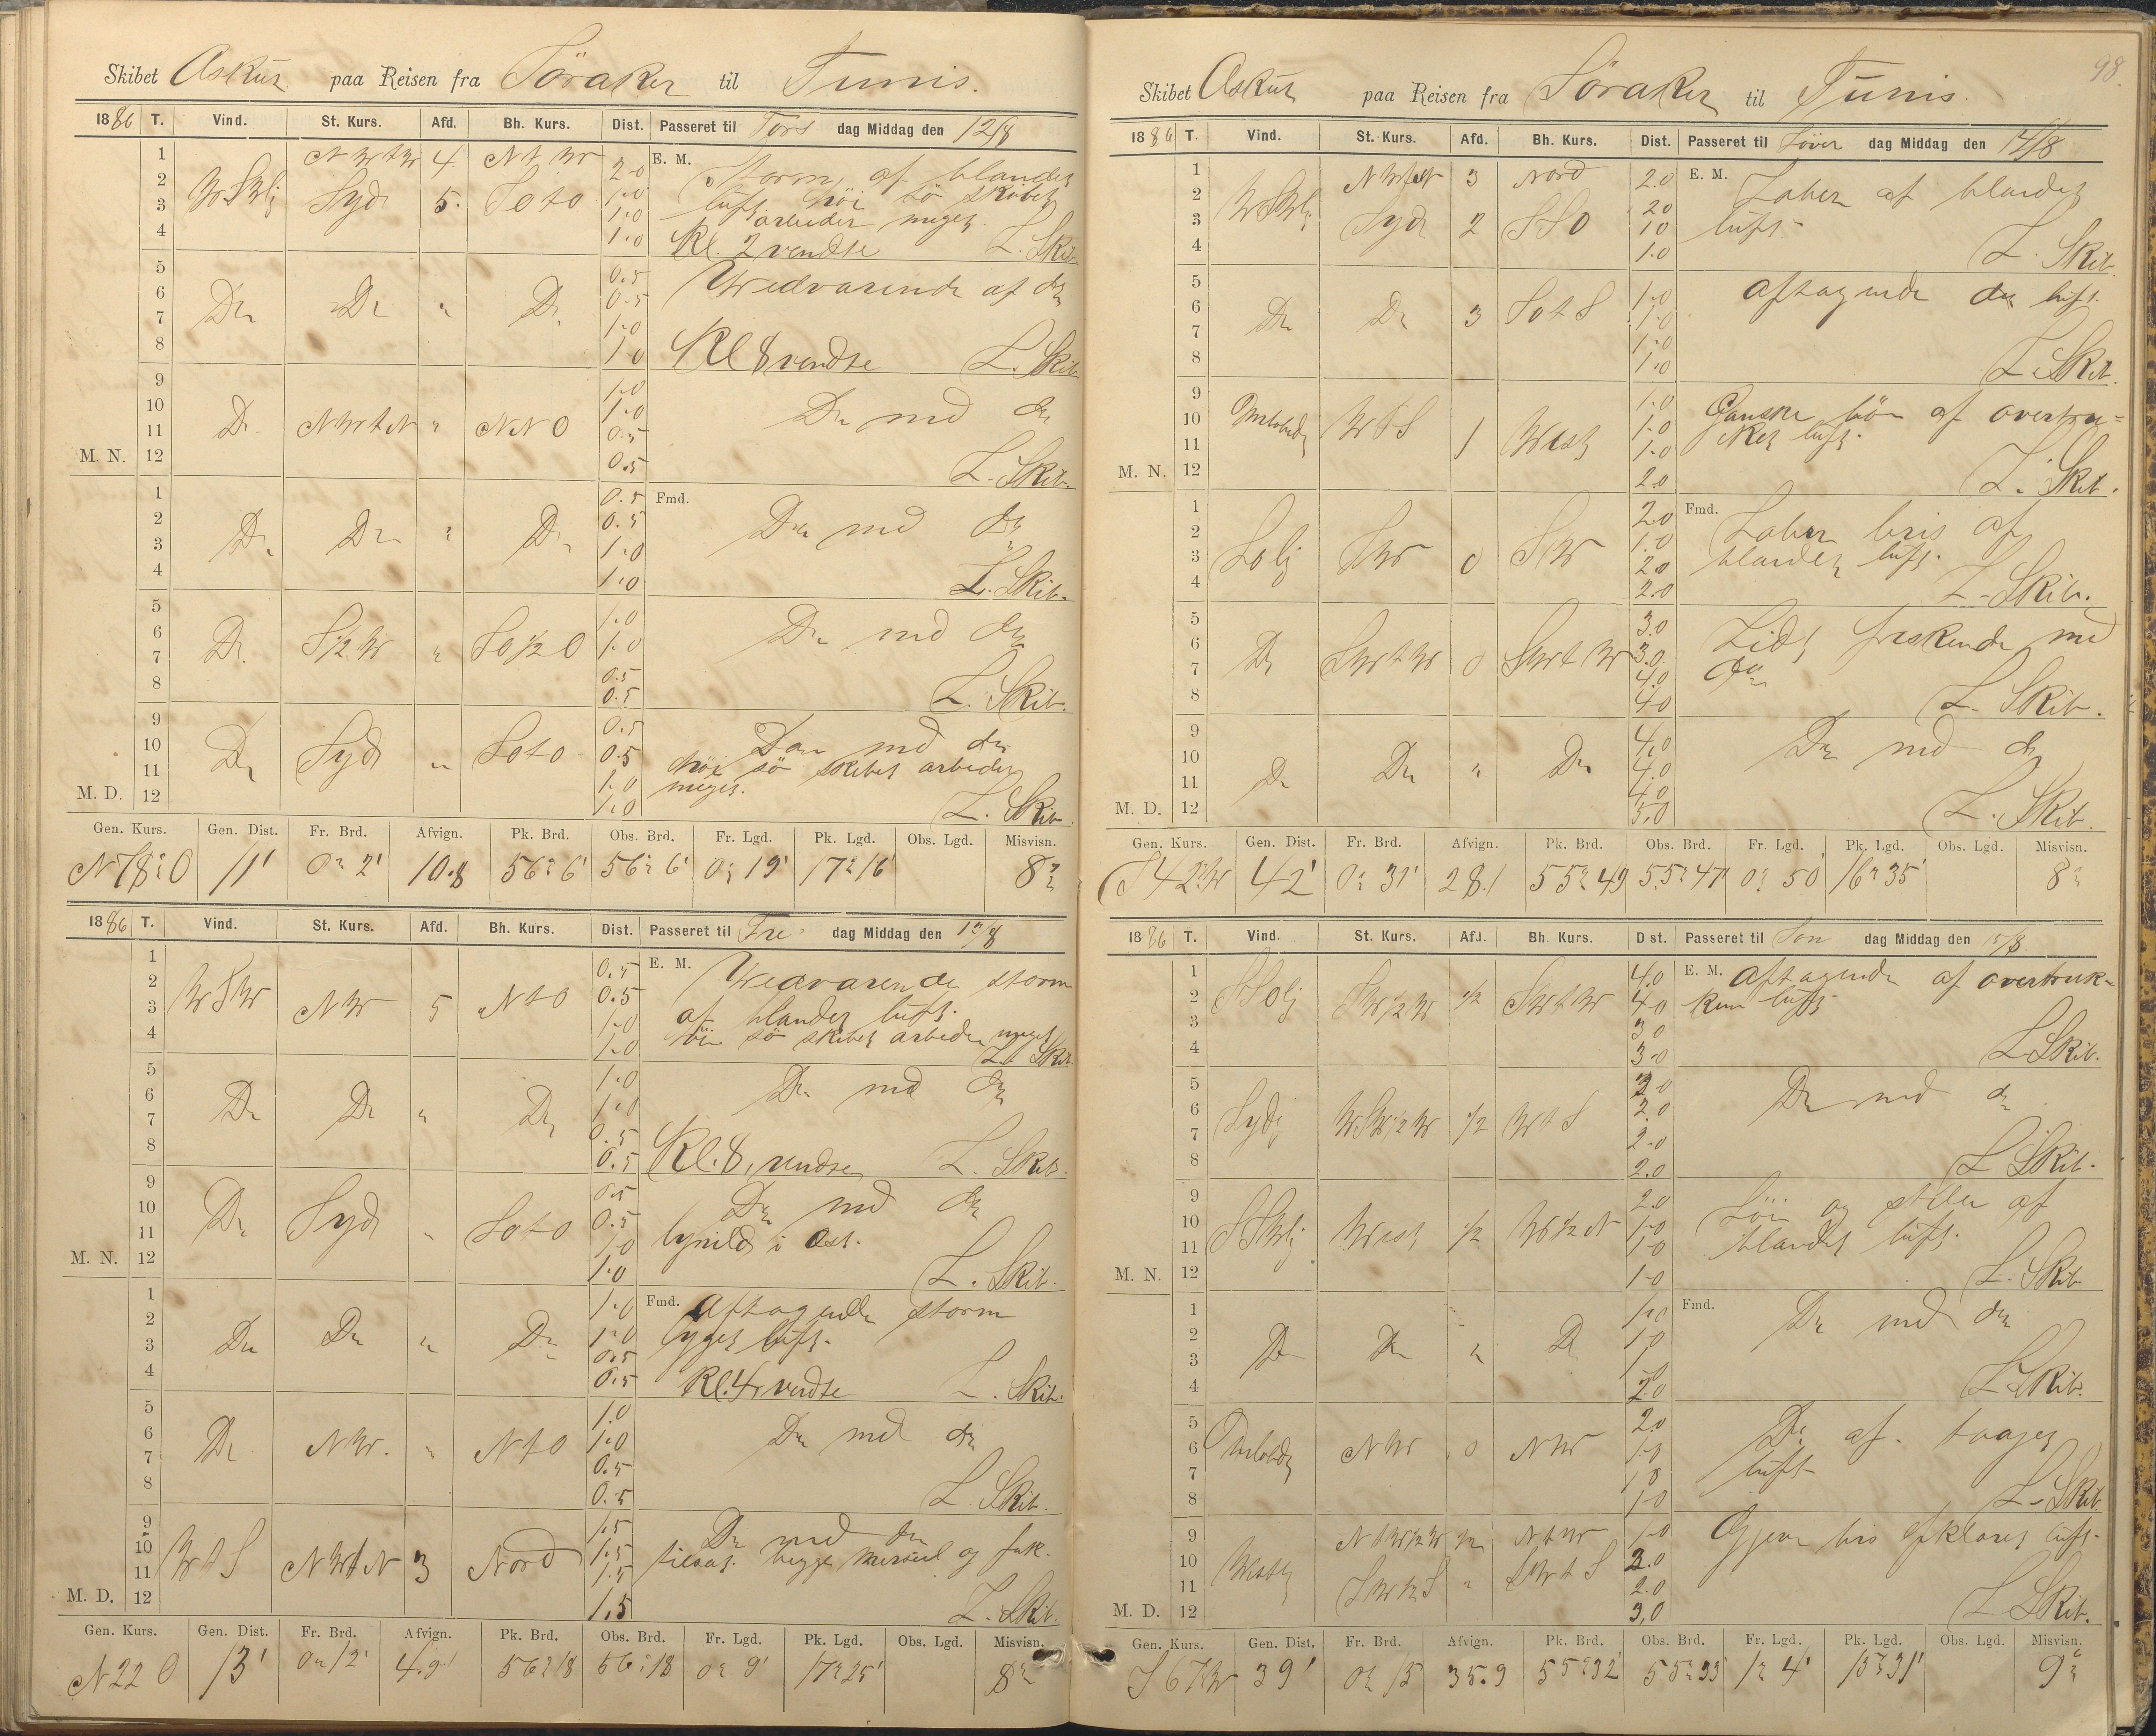 Skibet Askur paa Reisen fra Söraker til Tunis.
1886 T. Vind. St. Kurs. Afd. Bh. Kurs. Dist. Passeret til Tors dag Middag den 12/8
1 2 3 4 NWtW 4 NtW 2.0 E. M. Storm, af blandet
WSWlj Syd 5. SOtO 1.0 luft höi sö skibet
1.0 arbeider meget
1.0 Kl. 2 vendte L. Skib.
5 6 7 8 Do Do " Do 0.5 0.5 1.0 1.0 Wedvarende af do
Kl 8 vendte L. Skib.
9 10 11 12 M. N. Do NWtN " NNO 1.0 1.0 0.5 0.5 Do med do
L. Skib.
1 2 3 4 Do Do " Do 0.5 0.5 1.0 1.0 Fmd. Do med do
L. Skib.
5 6 7 8 Do S½W " SO½O 1.0 1.0 0.5 0.5 Do med do
L. Skib.
9 10 11 12 M. D. Do Syd " SOtO 0.5 0.5 1.0 1.0 Do med do
höi sö skibet arbeider
meget. L. Skib.
Gen. Kurs. Gen. Dist. Fr. Brd. Afvign. Pk. Brd. Obs. Brd. Fr. Lgd. Pk. Lgd. Obs. Lgd. Misvisn.
N78°O 11' 0° 2' 10.8 56° 6' 56° 6' 0° 19' 17° 16' 8°
1886 T. Vind. St. Kurs. Afd. Bh. Kurs. Dist. Passeret til Fre dag Middag den 13/8
1 2 3 4 WSW NW 5 NtO 0.5 0.5 1.0 1.0 E. M. Wedvarende storm
af blandet luft.
höi sö skibet arbeider meget
L. Skib.
5 6 7 8 Do Do " Do 1.0 1.0 0.5 0.5 Do med do
Kl. 8, vendte L. Skib.
9 10 11 12 M. N. Do Syd " SOtO 0.5 0.5 1.0 1.0 Do med do
lynild i Ost.
L. Skib.
1 2 3 4 Do Do " Do 1.0 1.0 0.5 0.5 Fmd. Aftagende storm
bygget luft.
Kl. 4 vendte L. Skib.
5 6 7 8 Do NW. " NtO 1.0 1.0 0.5 0.5 Do med do
L. Skib.
9 10 11 12 M. D. WtS NWtN 3 Nord 1.5 1.5 1.5 1.5 Do med do
tilsat begge mersseil og fok.
L. Skib.
Gen. Kurs. Gen. Dist. Fr. Brd. Afvign. Pk. Brd. Obs. Brd. Fr. Lgd. Pk. Lgd. Obs. Lgd. Misvisn.
N22 O 13' 0° 12' 4.9' 56° 18 56° 18 0° 9' 17° 25' 8°
98
Skibet Askur paa Reisen fra Söraker til Tunis.
1886 T. Vind. St. Kurs. Afd. Bh. Kurs. Dist. Passeret til Löver dag Middag den 14/8
1 2 3 4 WSWlj NWtN 3 Nord 2.0 2.0 E. M. Laber af blandet
Syd 2 SSO 1.0 1.0 luft
L. Skib.
5 6 7 8 Do Do 3 SOtS 1.0 1.0 1.0 1.0 Aftagende do luft.
L. Skib.
9 10 11 12 M. N. Omlobende WtS 1 West 1.0 1.0 1.0 2.0 Ganske löi af overtru=
cket luft.
L. Skib.
1 2 3 4 SOlj SW 0 SW 2.0 1.0 2.0 2.0 Fmd. Laber bris af
blandet luft.
L. Skib.
5 6 7 8 Do SWtW 0 SWtW 3.0 3.0 4.0 4.0 Lidt friskende med
do
L. Skib.
9 10 11 12 M. D. Do Do " Do 4.0 4.0 4.0 5.0 Do med do
L. Skib.
Gen. Kurs. Gen. Dist. Fr. Brd. Afvign. Pk. Brd. Obs. Brd. Fr. Lgd. Pk. Lgd. Obs. Lgd. Misvisn.
S42°W 42' 0° 31' 28.1 55° 49 55° 47' 0° 50' 16° 35' 8°
1886 T. Vind. St. Kurs. Afd. Bh. Kurs. Dist. Passeret til Sön dag Middag den 15/8.
1 2 3 4 SSOlj SW½W ½ SWtW 4.0 4.0 3.0 3.0 E. M. Aftagende af overtruk-
ken luft
L. Skib.
5 6 7 8 Sydj WSW½W ½ WtS 2.0 2.0 2.0 2.0 Do med do
L. Skib.
9 10 11 12 M. N. SSWlj West ½ W½N 2.0 1.0 1.0 1.0 Löi og stille af
blandet luft.
L. Skib.
1 2 3 4 Do Do " Do 1.0 1.0 1.0 2.0 Fmd. Do med do
L. Skib.
5 6 7 8 Omlobende NW 0 NW 2.0 1.0 1.0 1.0 Do af. taaget
luft
L. Skib.
9 10 11 12 M. D. Westlj NtW½W ½ NtW 1.0 2.0 2.0 3.0 Gjevn bris opklaret luft.
SW½S " SWtS
L. Skib.
Gen. Kurs. Gen. Dist. Fr. Brd. Afvign. Pk. Brd. Obs. Brd. Fr. Lgd. Pk. Lgd. Obs. Lgd. Misvisn.
S67W 39' 0° 15 35.9 55° 32' 55° 33' 1° 4' 15° 31' 9°